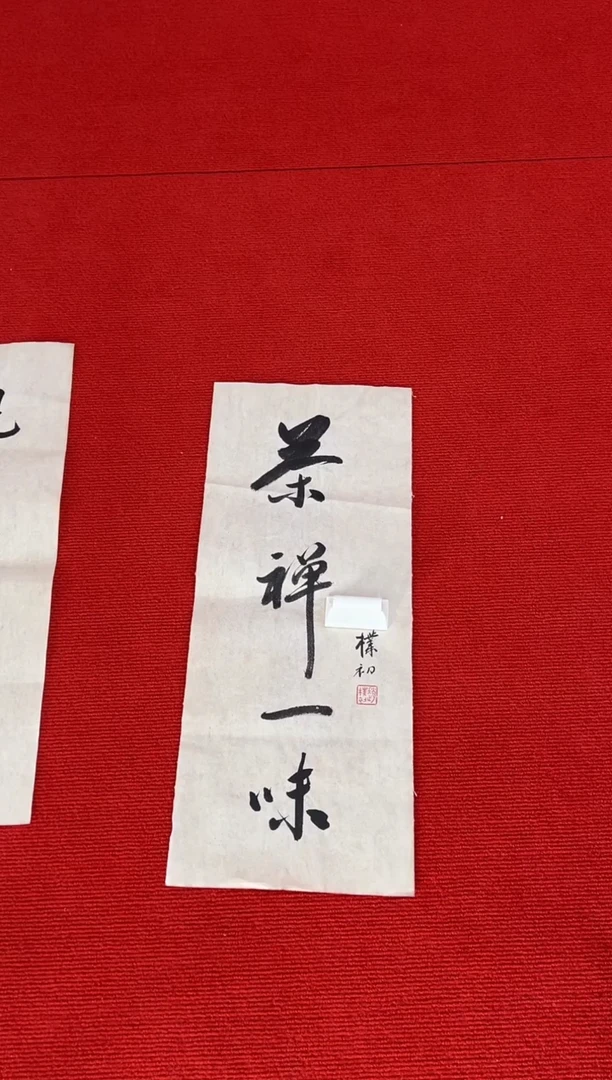 茶禅一味
樸初